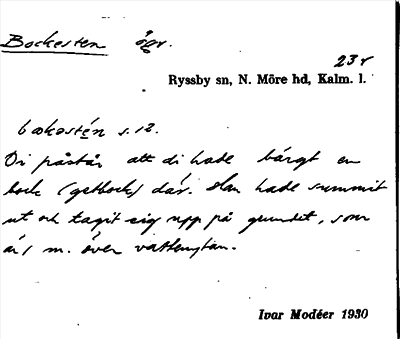 Bockesten ögr.
23 r
Ryssby sn, N. Möre hd, Kalm. l.
bokəstén s. 12.
Di påstår att di hade bärgt en
bock (getbock) där. Han hade summit
ut och tagit sig upp på grundet, som
är 1 m. över vattenytan.
Ivar Modéer 1930